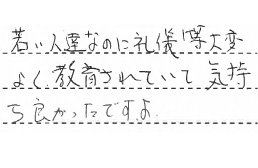 若い人達なのに礼儀等大変
よく教育されていて気持
ち良かったですよ.